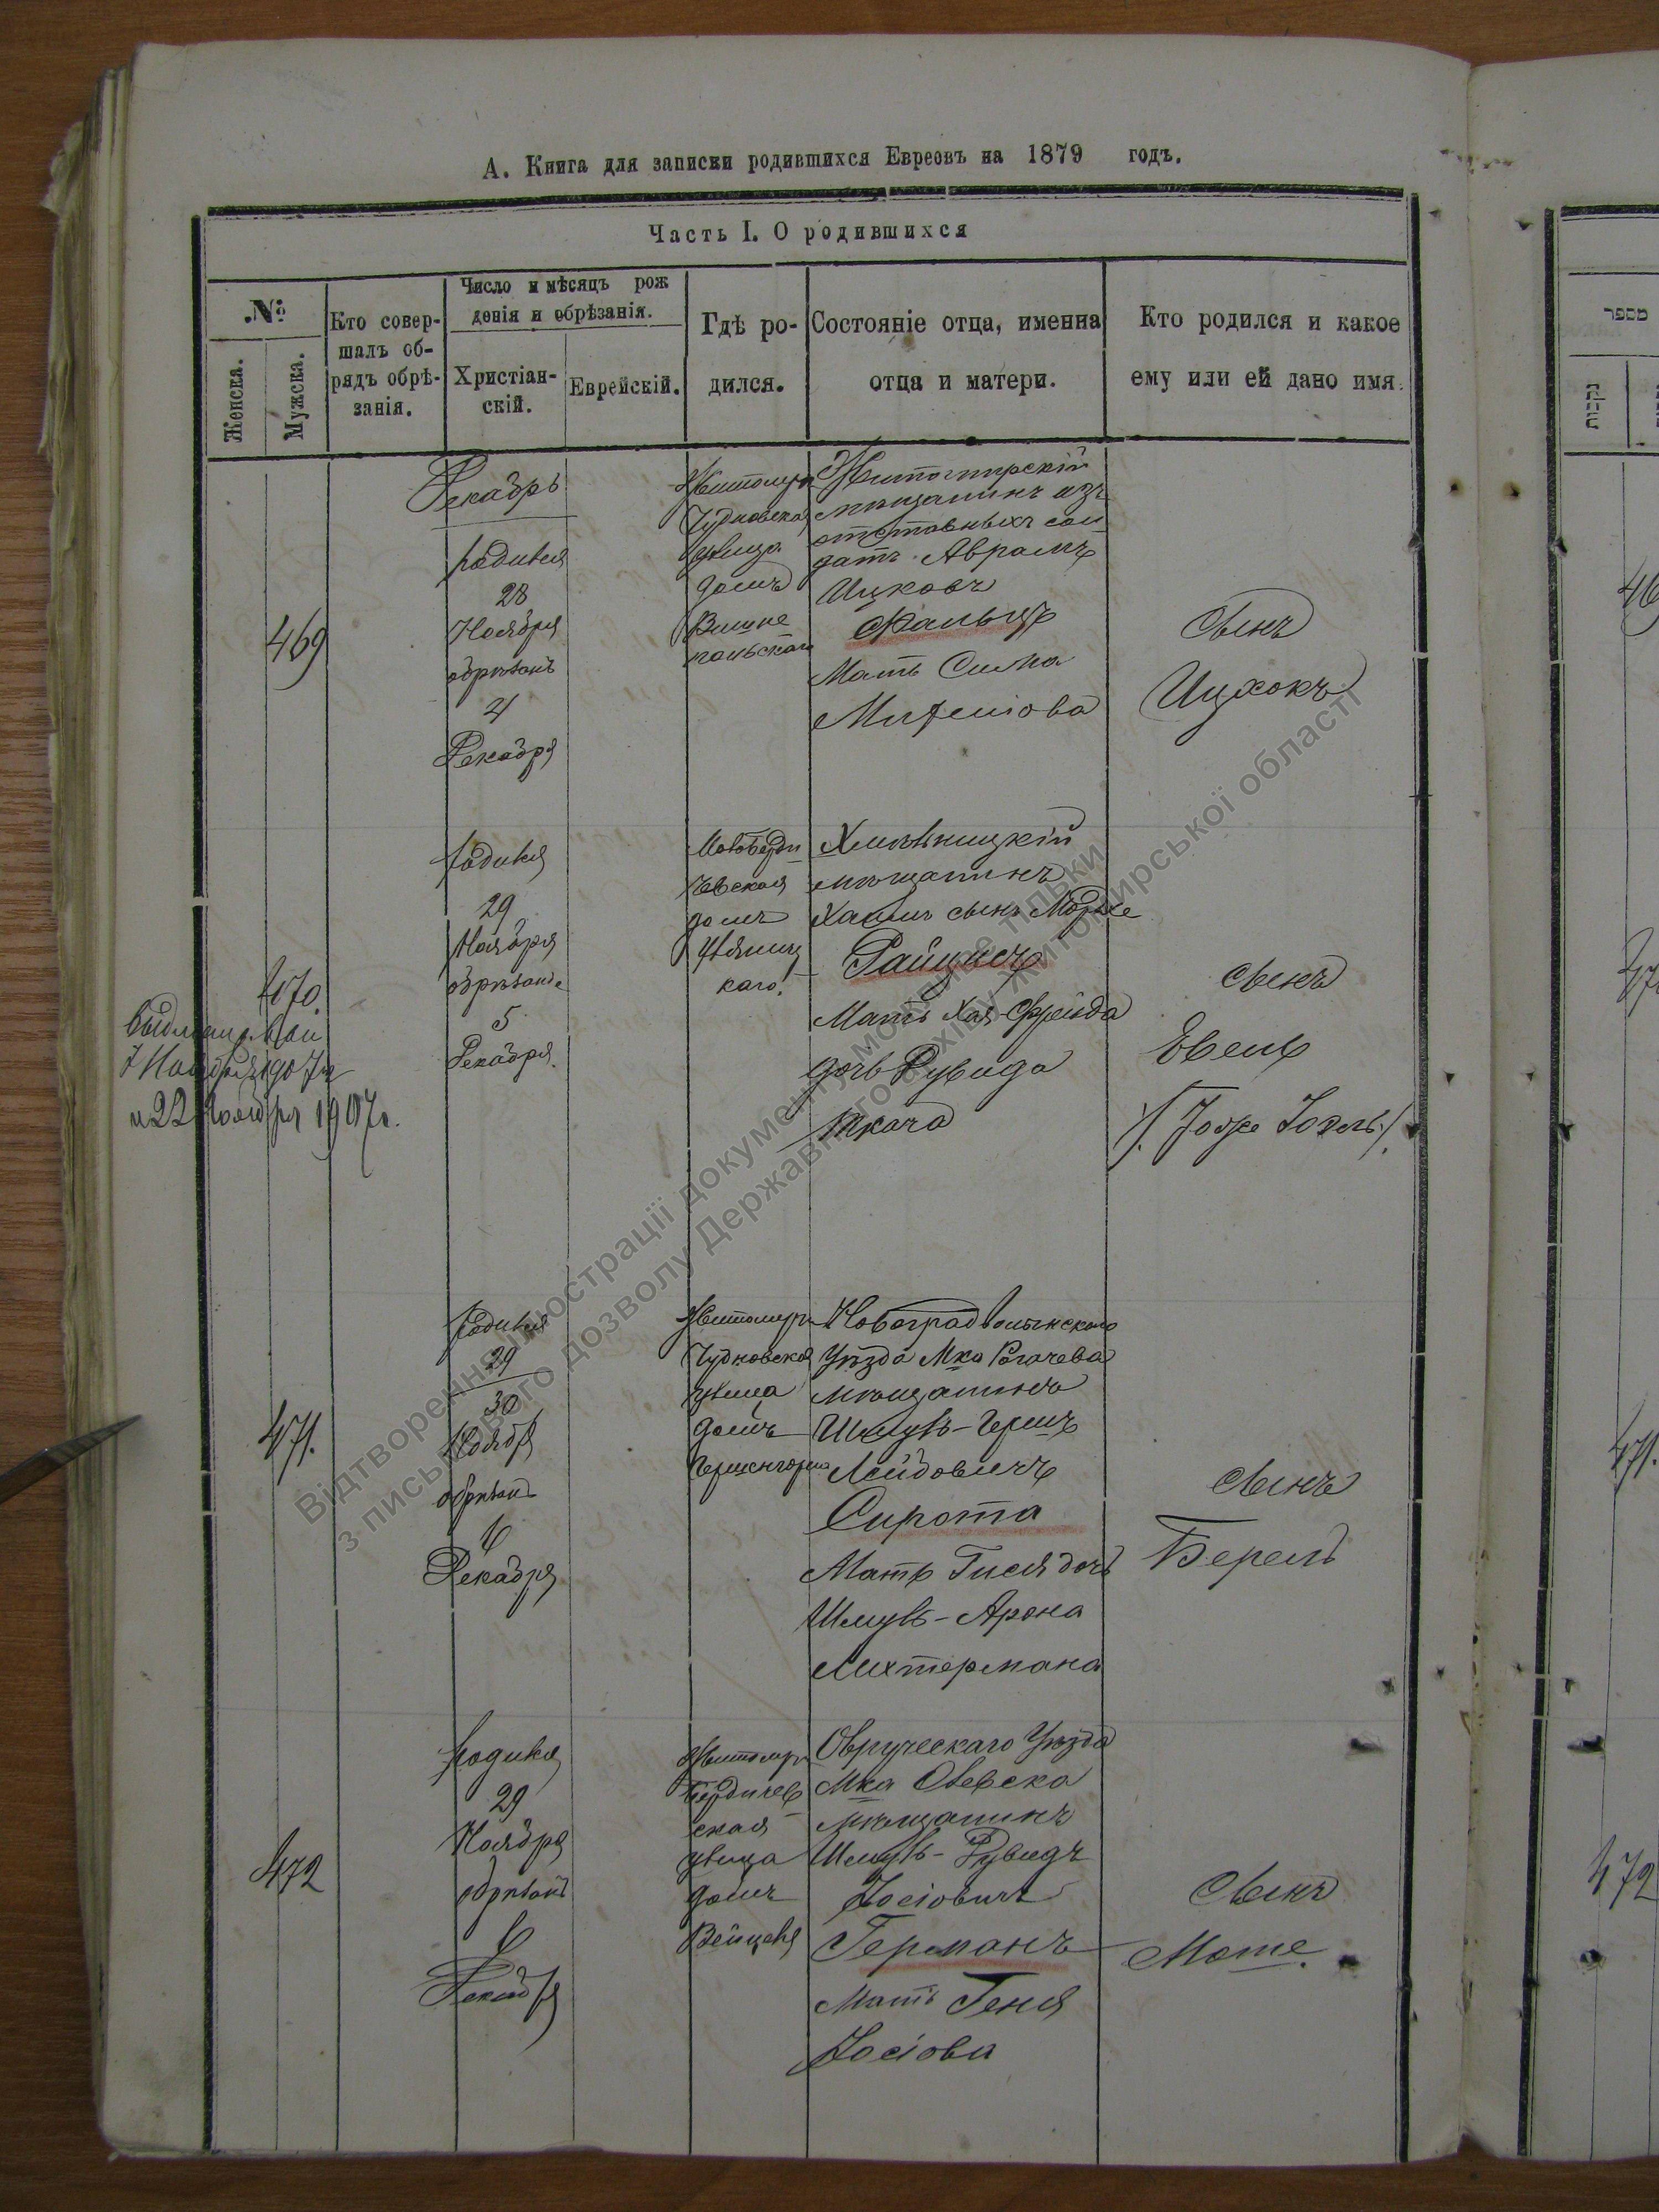 А. Книга для записки родившихся Евреовъ на 1879 годъ.
Часть I. О родившихся
№
Женска.
Мужска.
Кто совер-
шалъ об-
рядъ обрѣ-
занія.
Число и мѣсяцъ рож
денія и обрѣзанія.
Христіан-
скій.
Еврейскій.
Гдѣ ро-
дился.
Состояніе отца, имена
отца и матери.
Кто родился и какое
ему или ей дано имя.
Декабрь
469
родился
28
Ноября
обрѣзанъ
Декабря
Житомиръ
Чудновская
улица
домъ
Житомирскій
мѣщанинъ изъ
отставныхъ сол
датъ Аврамъ
Ицковъ
Мать Сима
сынъ
Ицхокъ
470.
7 Ноября 1907г
и 22 Ноября 1907г.
родился
29
Ноября
обрѣзанъ
5
Декабря.
домъ
каго.
мѣщанинъ
Хаимъ сынъ Мордке
Мать Хая-Фрейда
дочь Рувида
Ткача
сынъ
471.
родился
29
30
Ноября
обрѣзанъ
6
Декабря
Житомиръ
Чудновская
улица
домъ
Новоградволынскаго
Уѣзда Мка Рогачева
мѣщанинъ
Шмуль-Гершъ
Лейбовичъ
Сирота
Мать Гися дочь
Шмуль-Арона
Лихтермана
сынъ
Берель
472
родился
29
Ноября
обрѣзанъ
6
Декабря
Житомиръ
Бердичев
ская
улица
домъ
Овручскаго Уѣзда
Мка Олевска
мѣщанинъ
Шмуль-Рувидъ
Іосіовичъ
Германъ
Мать Геня
Іосіова
сынъ
Моте.
מספר
נקבות
471.
472
Відтворення ілюстрації документу можливе тільки
з письмового дозволу Державного архіву Житомирської області